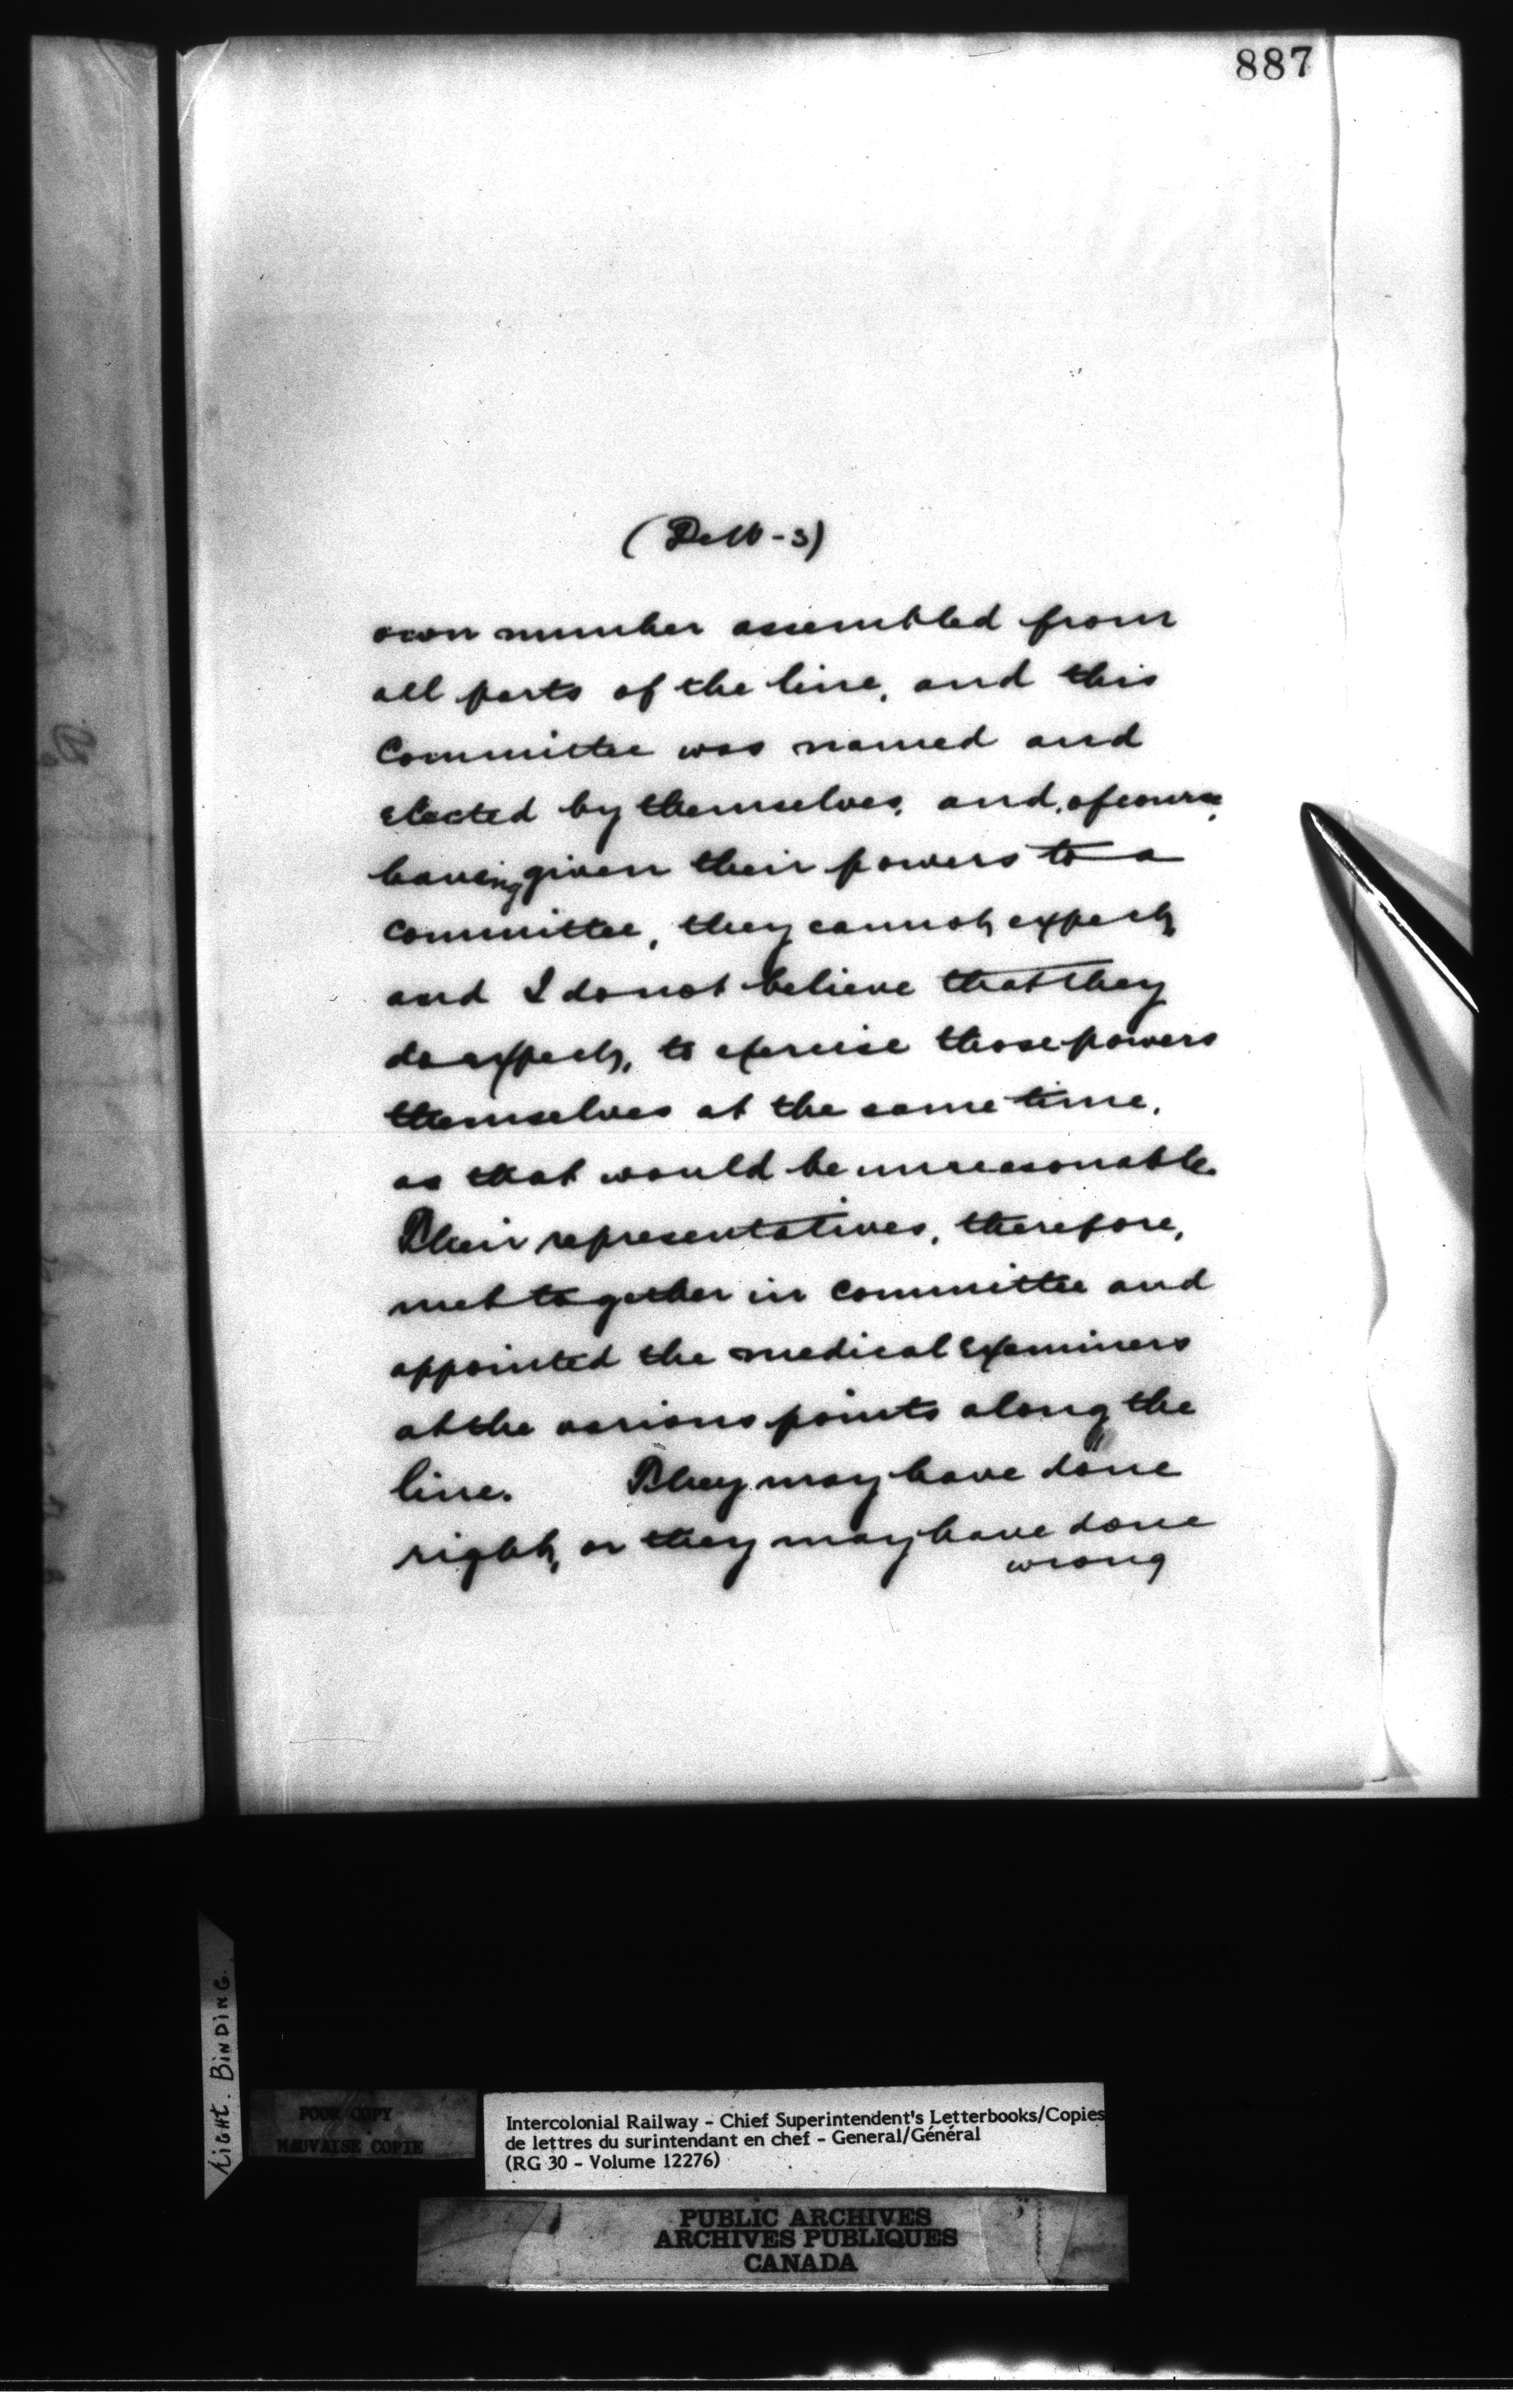 887
(DeW-3)
own number assembled from
all parts of the line, and this
Committee was named and
elected by themselves, and, of course,
having given their powers to a
committee, they cannot expect,
and I do not believe that they
do expect, to exercise those powers
themselves at the same time,
as that would be unreasonable.
Their representatives, therefore,
met together in Committee and
appointed the medical Examiners
at the various points along the
line. They may have done
right, or they may have done
wrong
LIGHT. BINDING.
POOR COPY
MAUVAISE COPIE
Intercolonial Railway - Chief Superintendent's Letterbooks/Copies
de lettres du surintendant en chef - General/Général
(RG 30 - Volume 12276)
PUBLIC ARCHIVES
ARCHIVES PUBLIQUES
CANADA